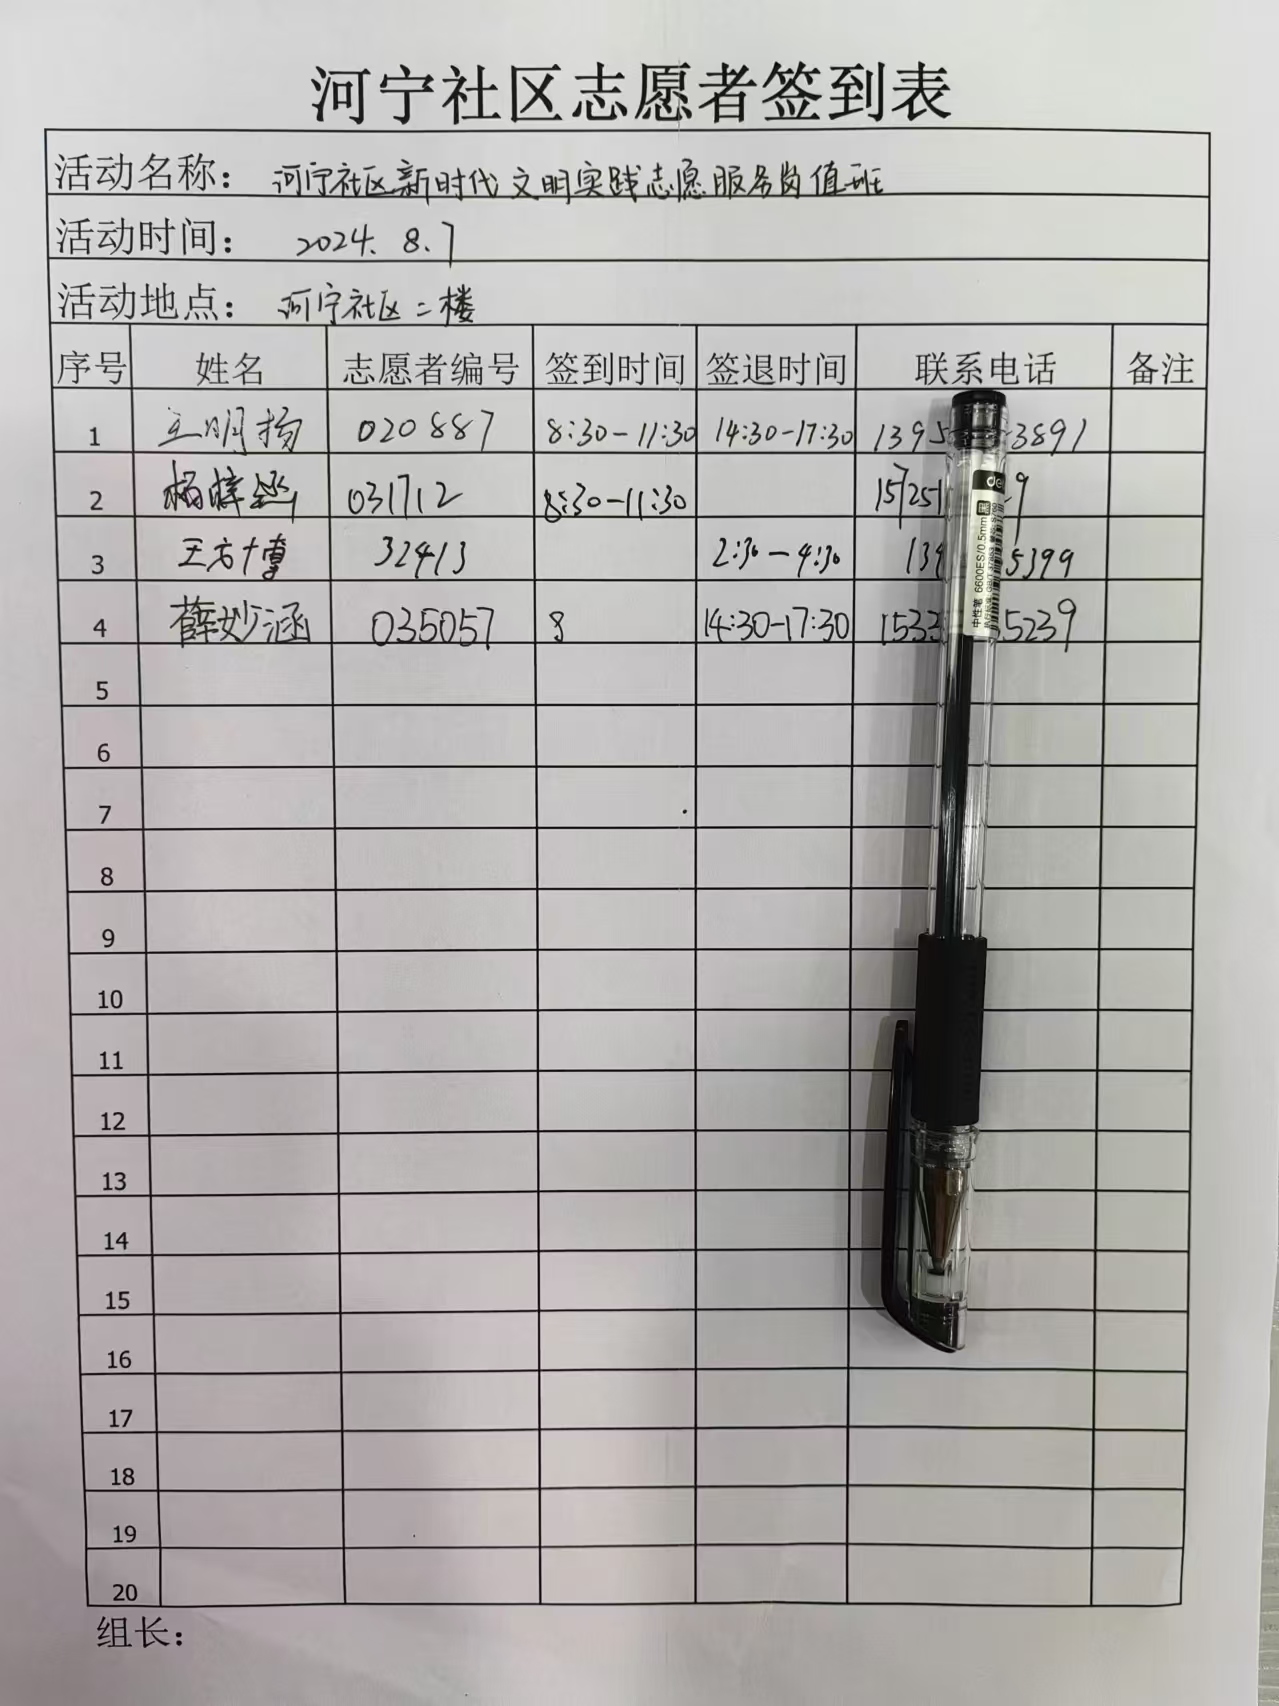 河宁社区志愿者签到表
活动名称： 河宁社区新时代文明实践志愿服务岗值班
活动时间： 2024. 8. 7
活动地点： 河宁社区二楼
序号 姓名 志愿者编号 签到时间 签退时间 联系电话 备注
1 王明扬 020887 8:30-11:30 14:30-17:30 1395 3891
2 杨梓 031712 8:30-11:30 15725 9
3 王方博 32413 2:30-4:30 139 5399
4 薛妙涵 035057 8 14:30-17:30 1533 5239
5
6
7
8
9
10
11
12
13
14
15
16
17
18
19
20
组长：
中性笔 6600ES/0.5mm 黑